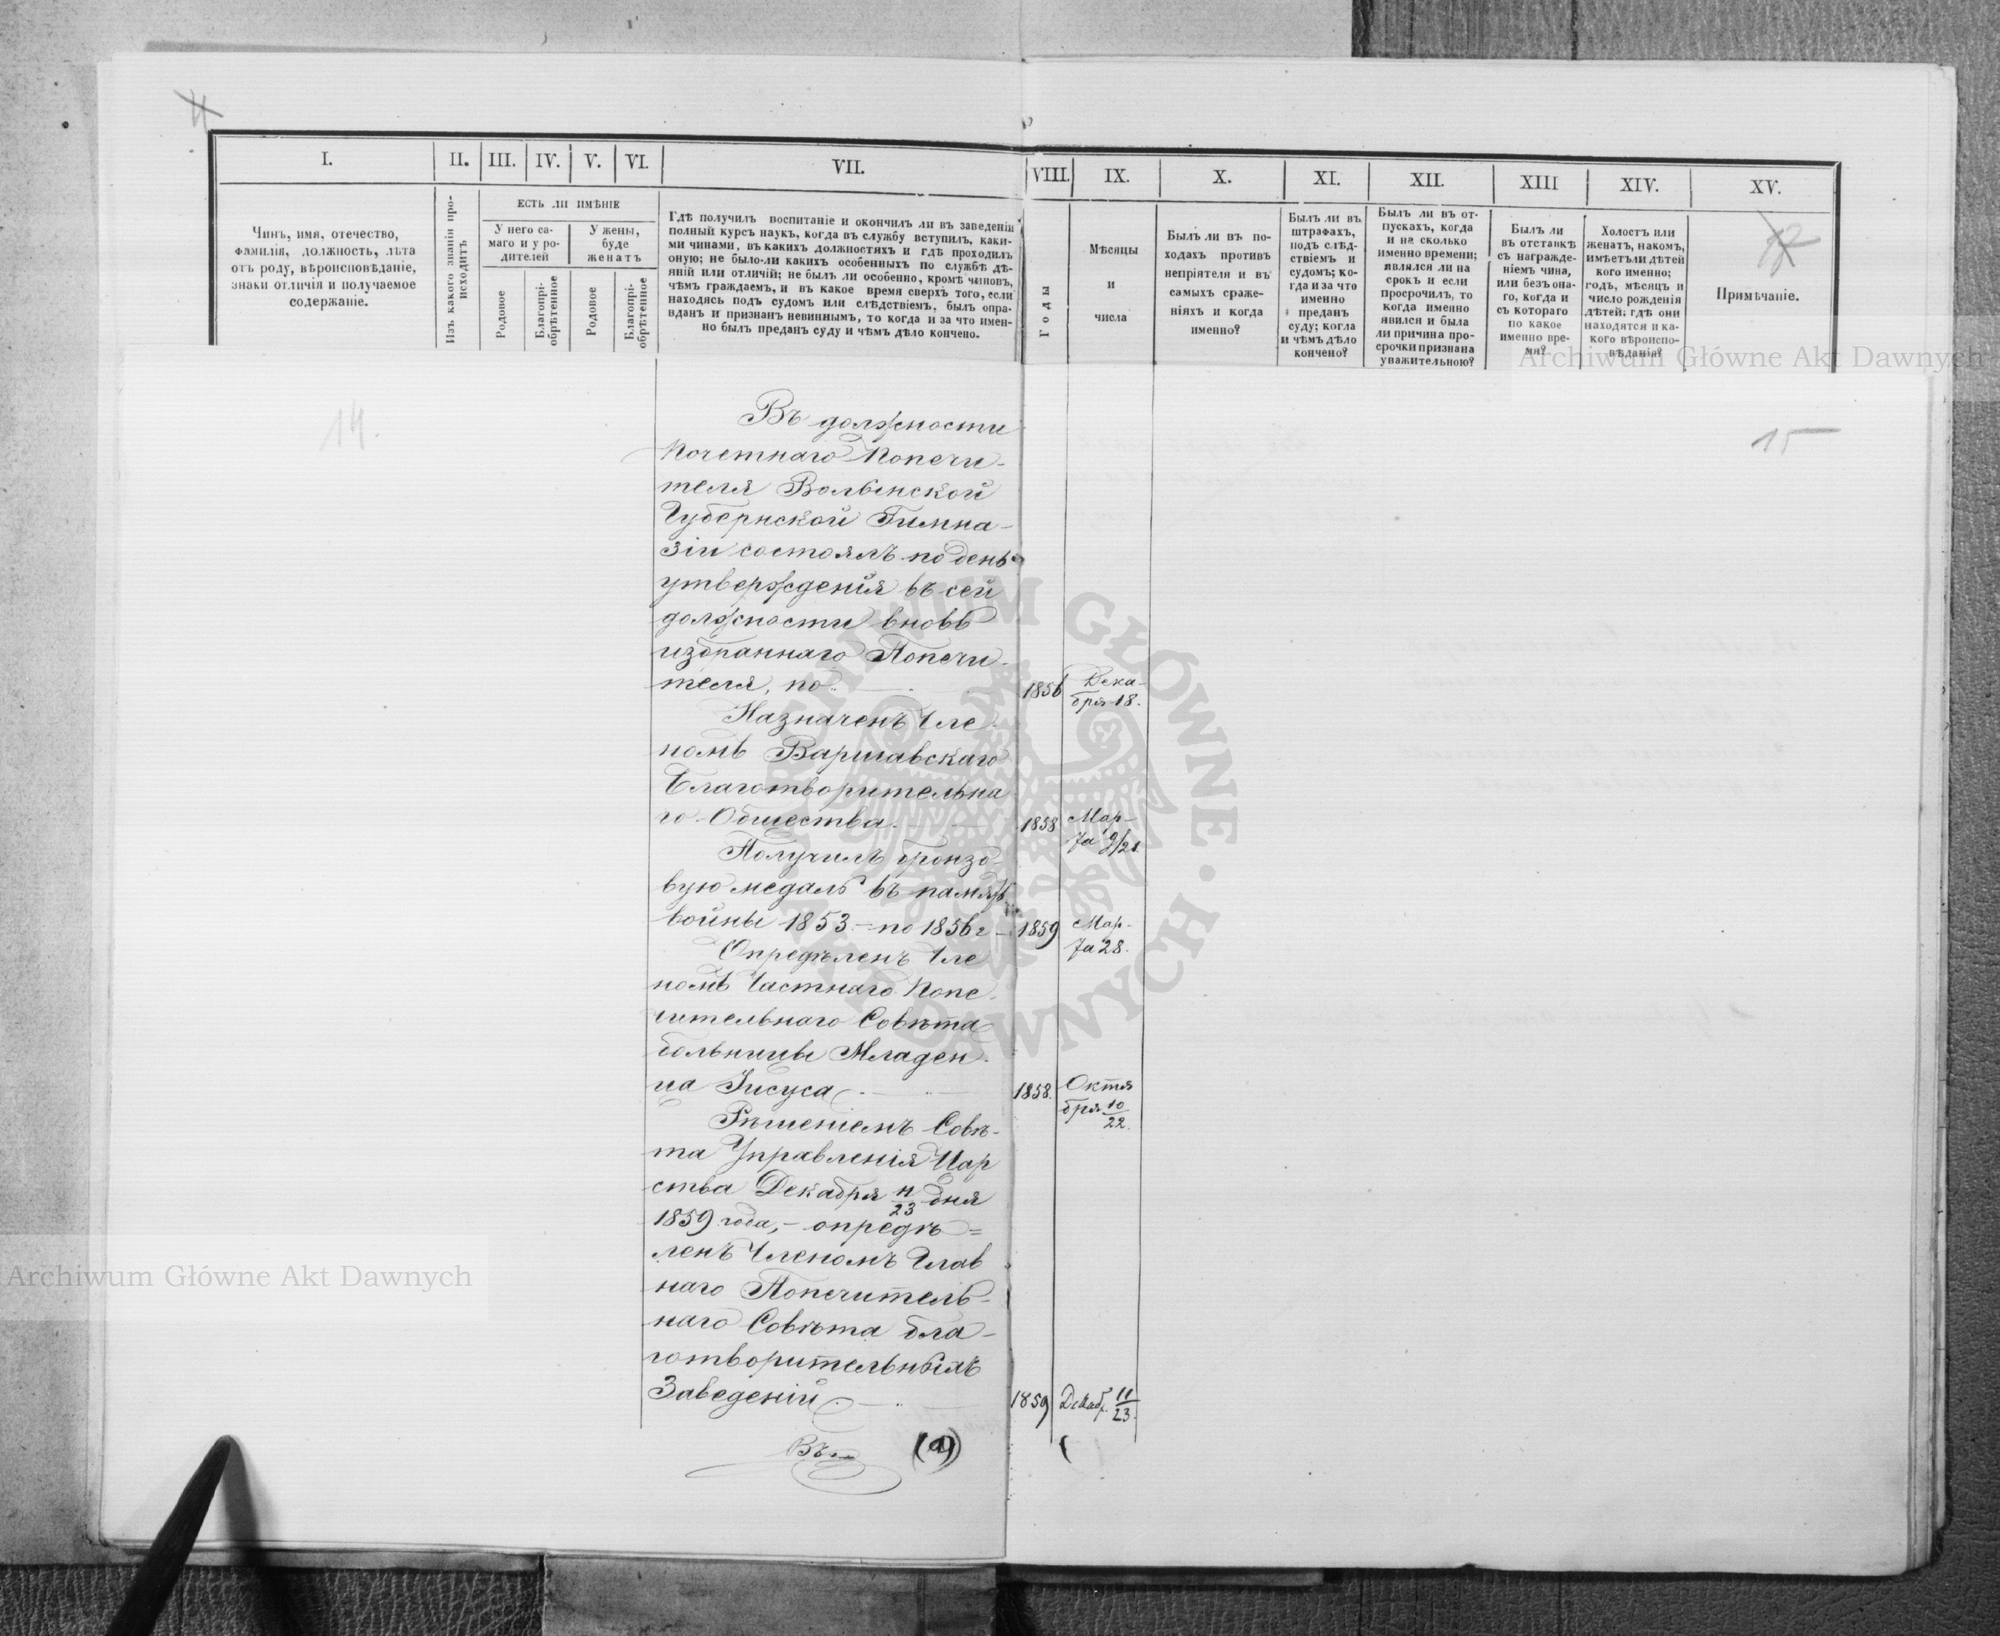 I.
II.
III.
IV.
V.
VI.
VII.
VIII.
IX.
X.
XI.
XII.
XIII
XIV.
XV.
Чинъ, имя, отечество,
фамилія, должность, лѣта
отъ роду, вѣроисповѣданіе,
знаки отличія и получаемое
содержаніе.
Изъ какого званія про-
исходитъ
ЕСТЬ ЛИ ИМѢНІЕ
У него са-
маго и у ро-
дителей
У жены,
буде
женатъ
Родовое
Благопрі-
обрѣтенное
Родовое
Благопрі-
обрѣтенное
Гдѣ получилъ воспитаніе и окончилъ ли въ заведеніи
полный курсъ наукъ, когда въ службу вступилъ, каки-
ми чинами, въ какихъ должностяхъ и гдѣ проходилъ
оную; не было-ли какихъ особенныхъ по службѣ дѣ-
яній или отличій; не былъ ли особенно, кромѣ чиновъ,
чѣмъ граждаемъ, и въ какое время сверхъ того, если
находясь подъ судомъ или слѣдствіемъ, былъ опра-
вданъ и признанъ невиннымъ, то когда и за что имен-
но былъ преданъ суду и чѣмъ дѣло кончено.
Годы
Мѣсяцы
и
числа
Былъ ли въ по-
ходахъ противъ
непріятеля и въ
самыхъ сраже-
ніяхъ и когда
именно?
Былъ ли въ
штрафахъ,
подъ слѣд-
ствіемъ и
судомъ; ко-
гда и за что
именно
преданъ
суду; когда
и чѣмъ дѣло
кончено?
Былъ ли въ от-
пускахъ, когда
и на сколько
именно времени;
являлся ли на
срокъ и если
просрочилъ, то
когда именно
явился и была
ли причина про-
срочки признана
уважительною?
Былъ ли
въ отставкѣ
съ награжде-
ніемъ чина,
или безъ она-
го, когда и
съ котораго
по какое
именно вре-
мя?
Холостъ или
женатъ, на комъ,
имѣетъ ли дѣтей
кого именно;
годъ, мѣсяцъ и
число рожденія
дѣтей; гдѣ они
находятся и ка-
кого вѣроиспо-
вѣданія?
Примѣчаніе.
14.
15
Въ должности
Почетнаго Попечи-
теля Волынской
Губернской Гимна-
зіи состоялъ по день
утвержденія въ сей
должности вновь
избраннаго Попечи-
теля, по
1856 Дека-
бря 18.
Назначенъ Чле
номъ Варшавскаго
Благотворительна
го Общества.
1858 Мар-
та 9/21
Получилъ бронзо-
вую медаль въ память
войны 1853 - по 1856 г -
1859 Мар-
та 28.
Опредѣленъ Чле
номъ Частнаго Попе-
чительнаго Совѣта
больницы Младен-
ца Іисуса
1858. Октя
бря 10/22.
Рѣшеніемъ Совѣ-
та Управленія Цар
ства Декабря 11/23 дня
1859 года, - опредѣ=
ленъ Членомъ Глав
наго Попечитель-
наго Совѣта бла-
готворительныхъ
Заведеній
1859 Декаб. 11/23.
Въ
Archiwum Główne Akt Dawnych
Archiwum Główne Akt Dawnych
ARCHIWUM GŁÓWNE · AKT DAWNYCH ·